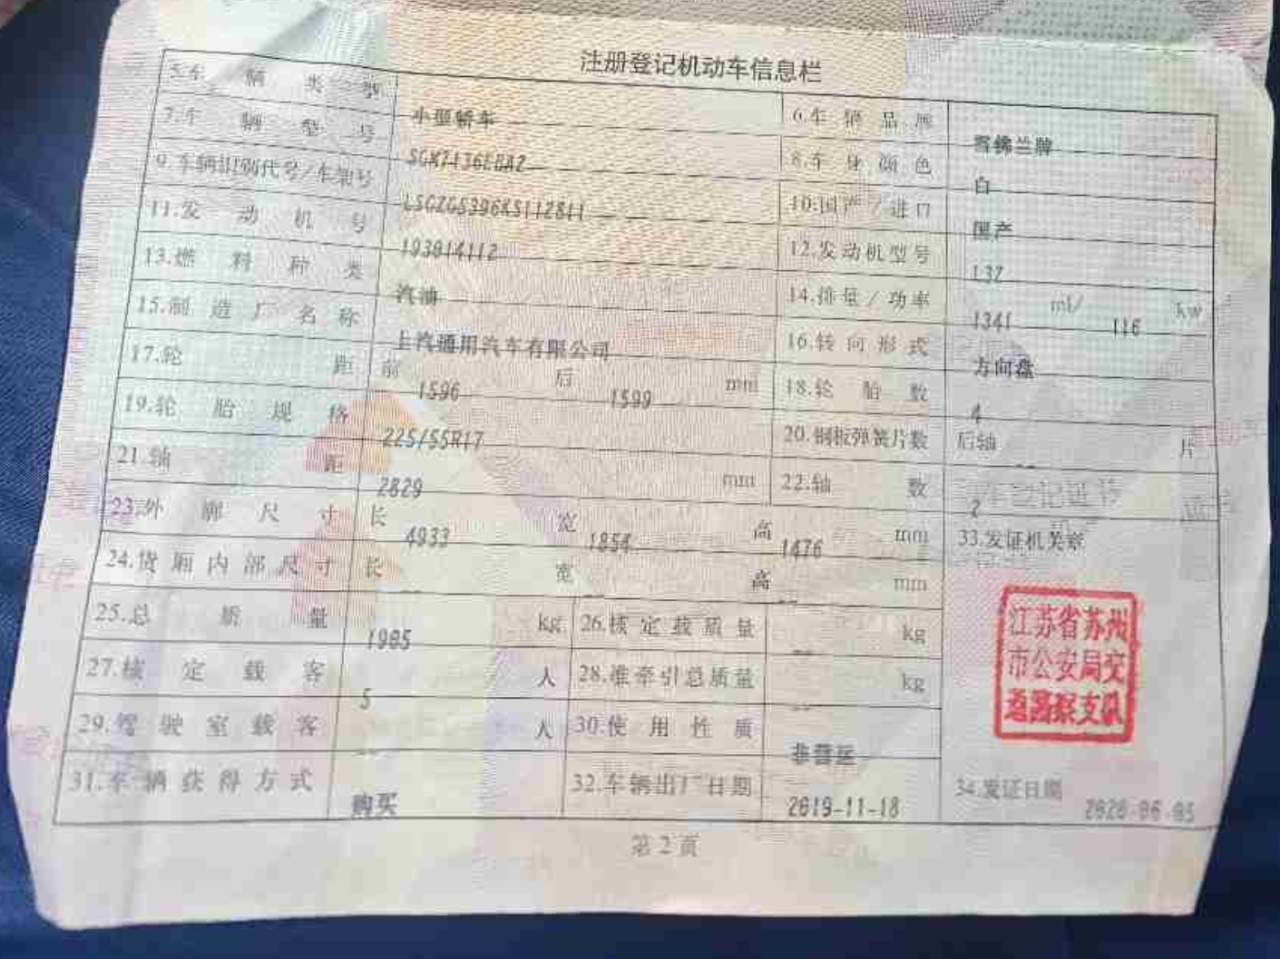 注册登记机动车信息栏
5.车辆类型 小型轿车 6.车辆品牌 雪佛兰牌
7.车辆型号 8.车身颜色 白
9.车辆识别代号/车架号 LSGZG5396KS112811 10.国产/进口 国产
11.发动机号 193014112 12.发动机型号
13.燃料种类 汽油 14.排量/功率 1341 ml/ 116 kw
15.制造厂名称 上汽通用汽车有限公司 16.转向形式 方向盘
17.轮距 前 1596 后 1599 mm 18.轮胎数 4
19.轮胎规格 225/55R17 20.钢板弹簧片数 后轴 -- 片
21.轴距 2829 mm 22.轴数 2
23.外廓尺寸 长 4933 宽 1854 高 1476 mm 33.发证机关章
24.货厢内部尺寸 长 -- 宽 -- 高 -- mm
25.总质量 1985 kg 26.核定载质量 -- kg
江苏省苏州
市公安局交
通警察支队
27.核定载客 5 人 28.准牵引总质量 -- kg
29.驾驶室载客 -- 人 30.使用性质 非营运
31.车辆获得方式 购买 32.车辆出厂日期 2019-11-18 34.发证日期 2020-06-05
第2页